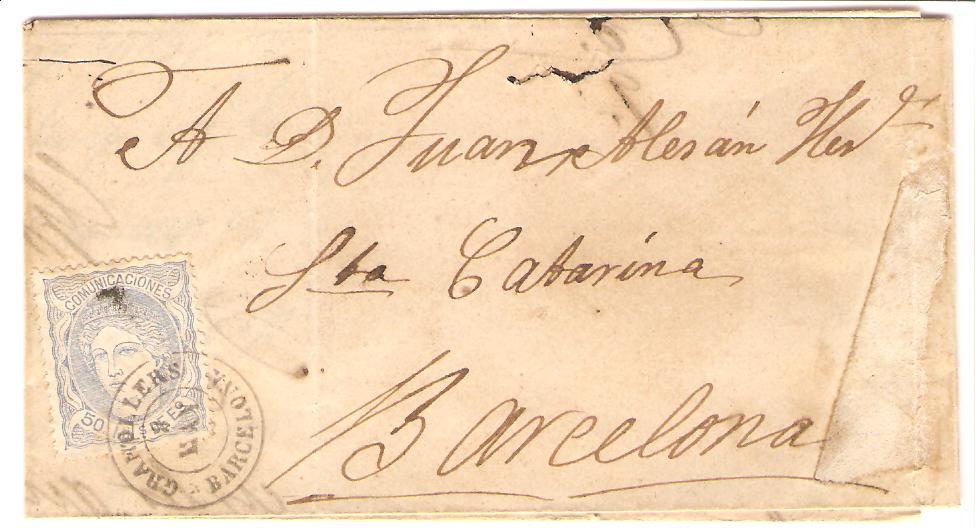 A D. Juan Alesán Herd
Sta Catarina
Barcelona
COMUNICACIONES
50
GRANOLLERS
BARCELONA